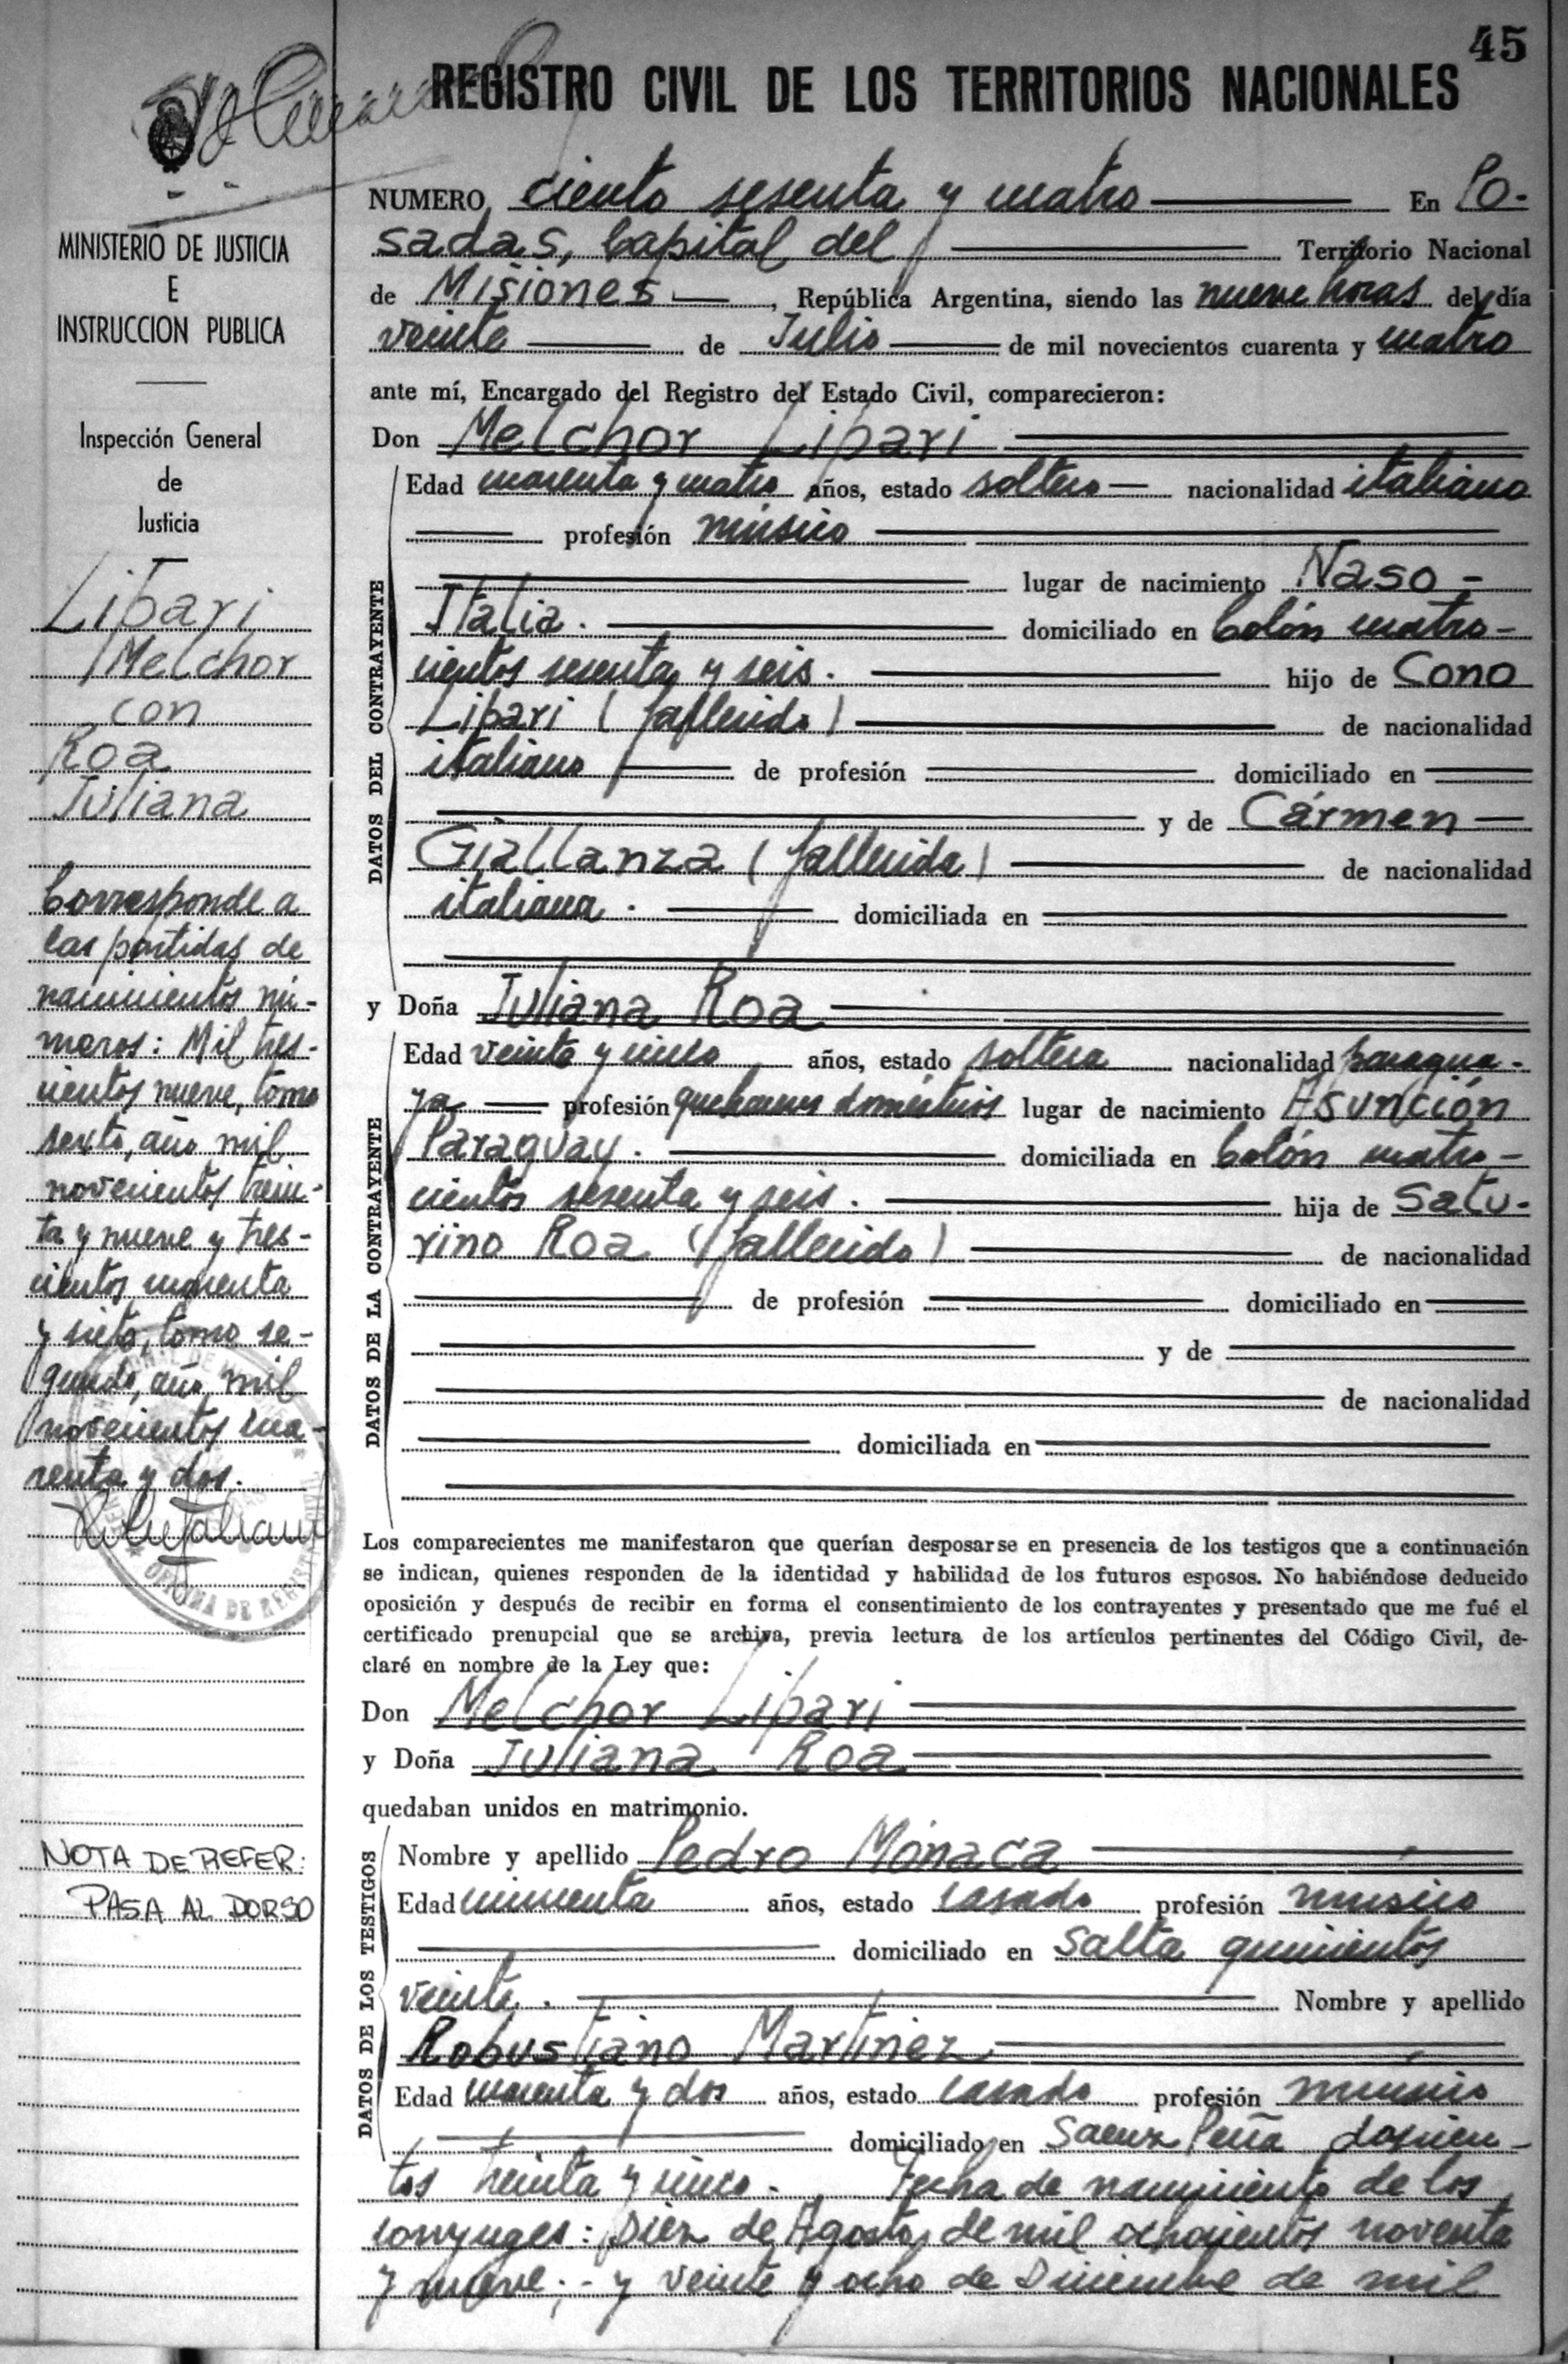 45
REGISTRO CIVIL DE LOS TERRITORIOS NACIONALES
MINISTERIO DE JUSTICIA
E
INSTRUCCION PUBLICA
Inspección General
de
Justicia
Lipari
Melchor
con
Roa
Juliana
Corresponde a
las partidas de
nacimientos nú-
meros: Mil tres-
cientos nueve, tomo
sexto, año mil
novecientos trein-
ta y nueve y tres-
cientos cuarenta
y siete, tomo se-
gundo, año mil
novecientos cua-
renta y dos.
OFICINA DE
NOTA DE REFER:
PASA AL DORSO
NUMERO ciento sesenta y cuatro En Po-
sadas, Capital del Territorio Nacional
de Misiones, República Argentina, siendo las nueve horas del día
veinte de Julio de mil novecientos cuarenta y cuatro
ante mí, Encargado del Registro del Estado Civil, comparecieron:
Don Melchor Lipari
DATOS DEL CONTRAYENTE
Edad cuarenta y cuatro años, estado soltero nacionalidad italiano
profesión músico
lugar de nacimiento Naso -
Italia. domiciliado en Colón cuatro-
cientos sesenta y seis. hijo de Cono
Lipari (fallecido) de nacionalidad
italiano de profesión domiciliado en
y de Cármen
Giallanza (fallecida) de nacionalidad
italiana. domiciliada en
y Doña Juliana Roa
DATOS DE LA CONTRAYENTE
Edad veinte y cinco años, estado soltera nacionalidad paragua-
ya profesión quehaceres domésticos lugar de nacimiento Asunción
Paraguay. domiciliada en Colón cuatro-
cientos sesenta y seis. hija de Satu-
rino Roa (fallecido) de nacionalidad
de profesión domiciliado en
y de
de nacionalidad
domiciliada en
Los comparecientes me manifestaron que querían desposarse en presencia de los testigos que a continuación
se indican, quienes responden de la identidad y habilidad de los futuros esposos. No habiéndose deducido
oposición y después de recibir en forma el consentimiento de los contrayentes y presentado que me fué el
certificado prenupcial que se archiva, previa lectura de los artículos pertinentes del Código Civil, de-
claré en nombre de la Ley que:
Don Melchor Lipari
y Doña Juliana Roa
quedaban unidos en matrimonio.
DATOS DE LOS TESTIGOS
Nombre y apellido Pedro Mónaca
Edad cincuenta años, estado casado profesión músico
domiciliado en Salta quinientos
veinte. Nombre y apellido
Robustiano Martinez
Edad cuarenta y dos años, estado casado profesión músico
domiciliado en Saenz Peña doscien-
tos treinta y cinco. Fecha de nacimiento de los
conyuges: Diez de Agosto de mil ochocientos noventa
y nueve;- y veinte y ocho de Diciembre de mil